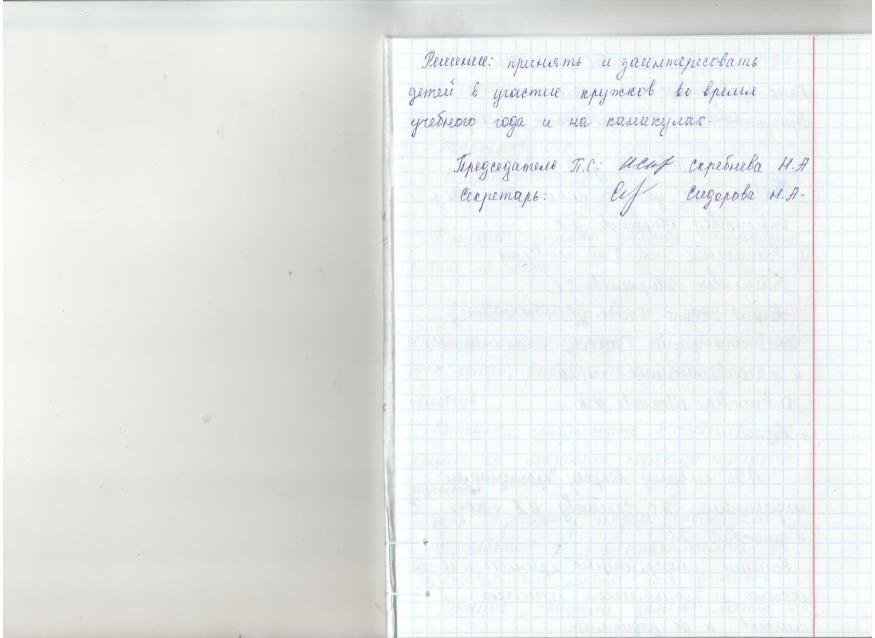 Решение: принять и заинтересовать
детей в участие кружков во время
учебного года и на каникулах.
Председатель П.С: Скребнева Н.А
Секретарь: Сидорова Н.А.